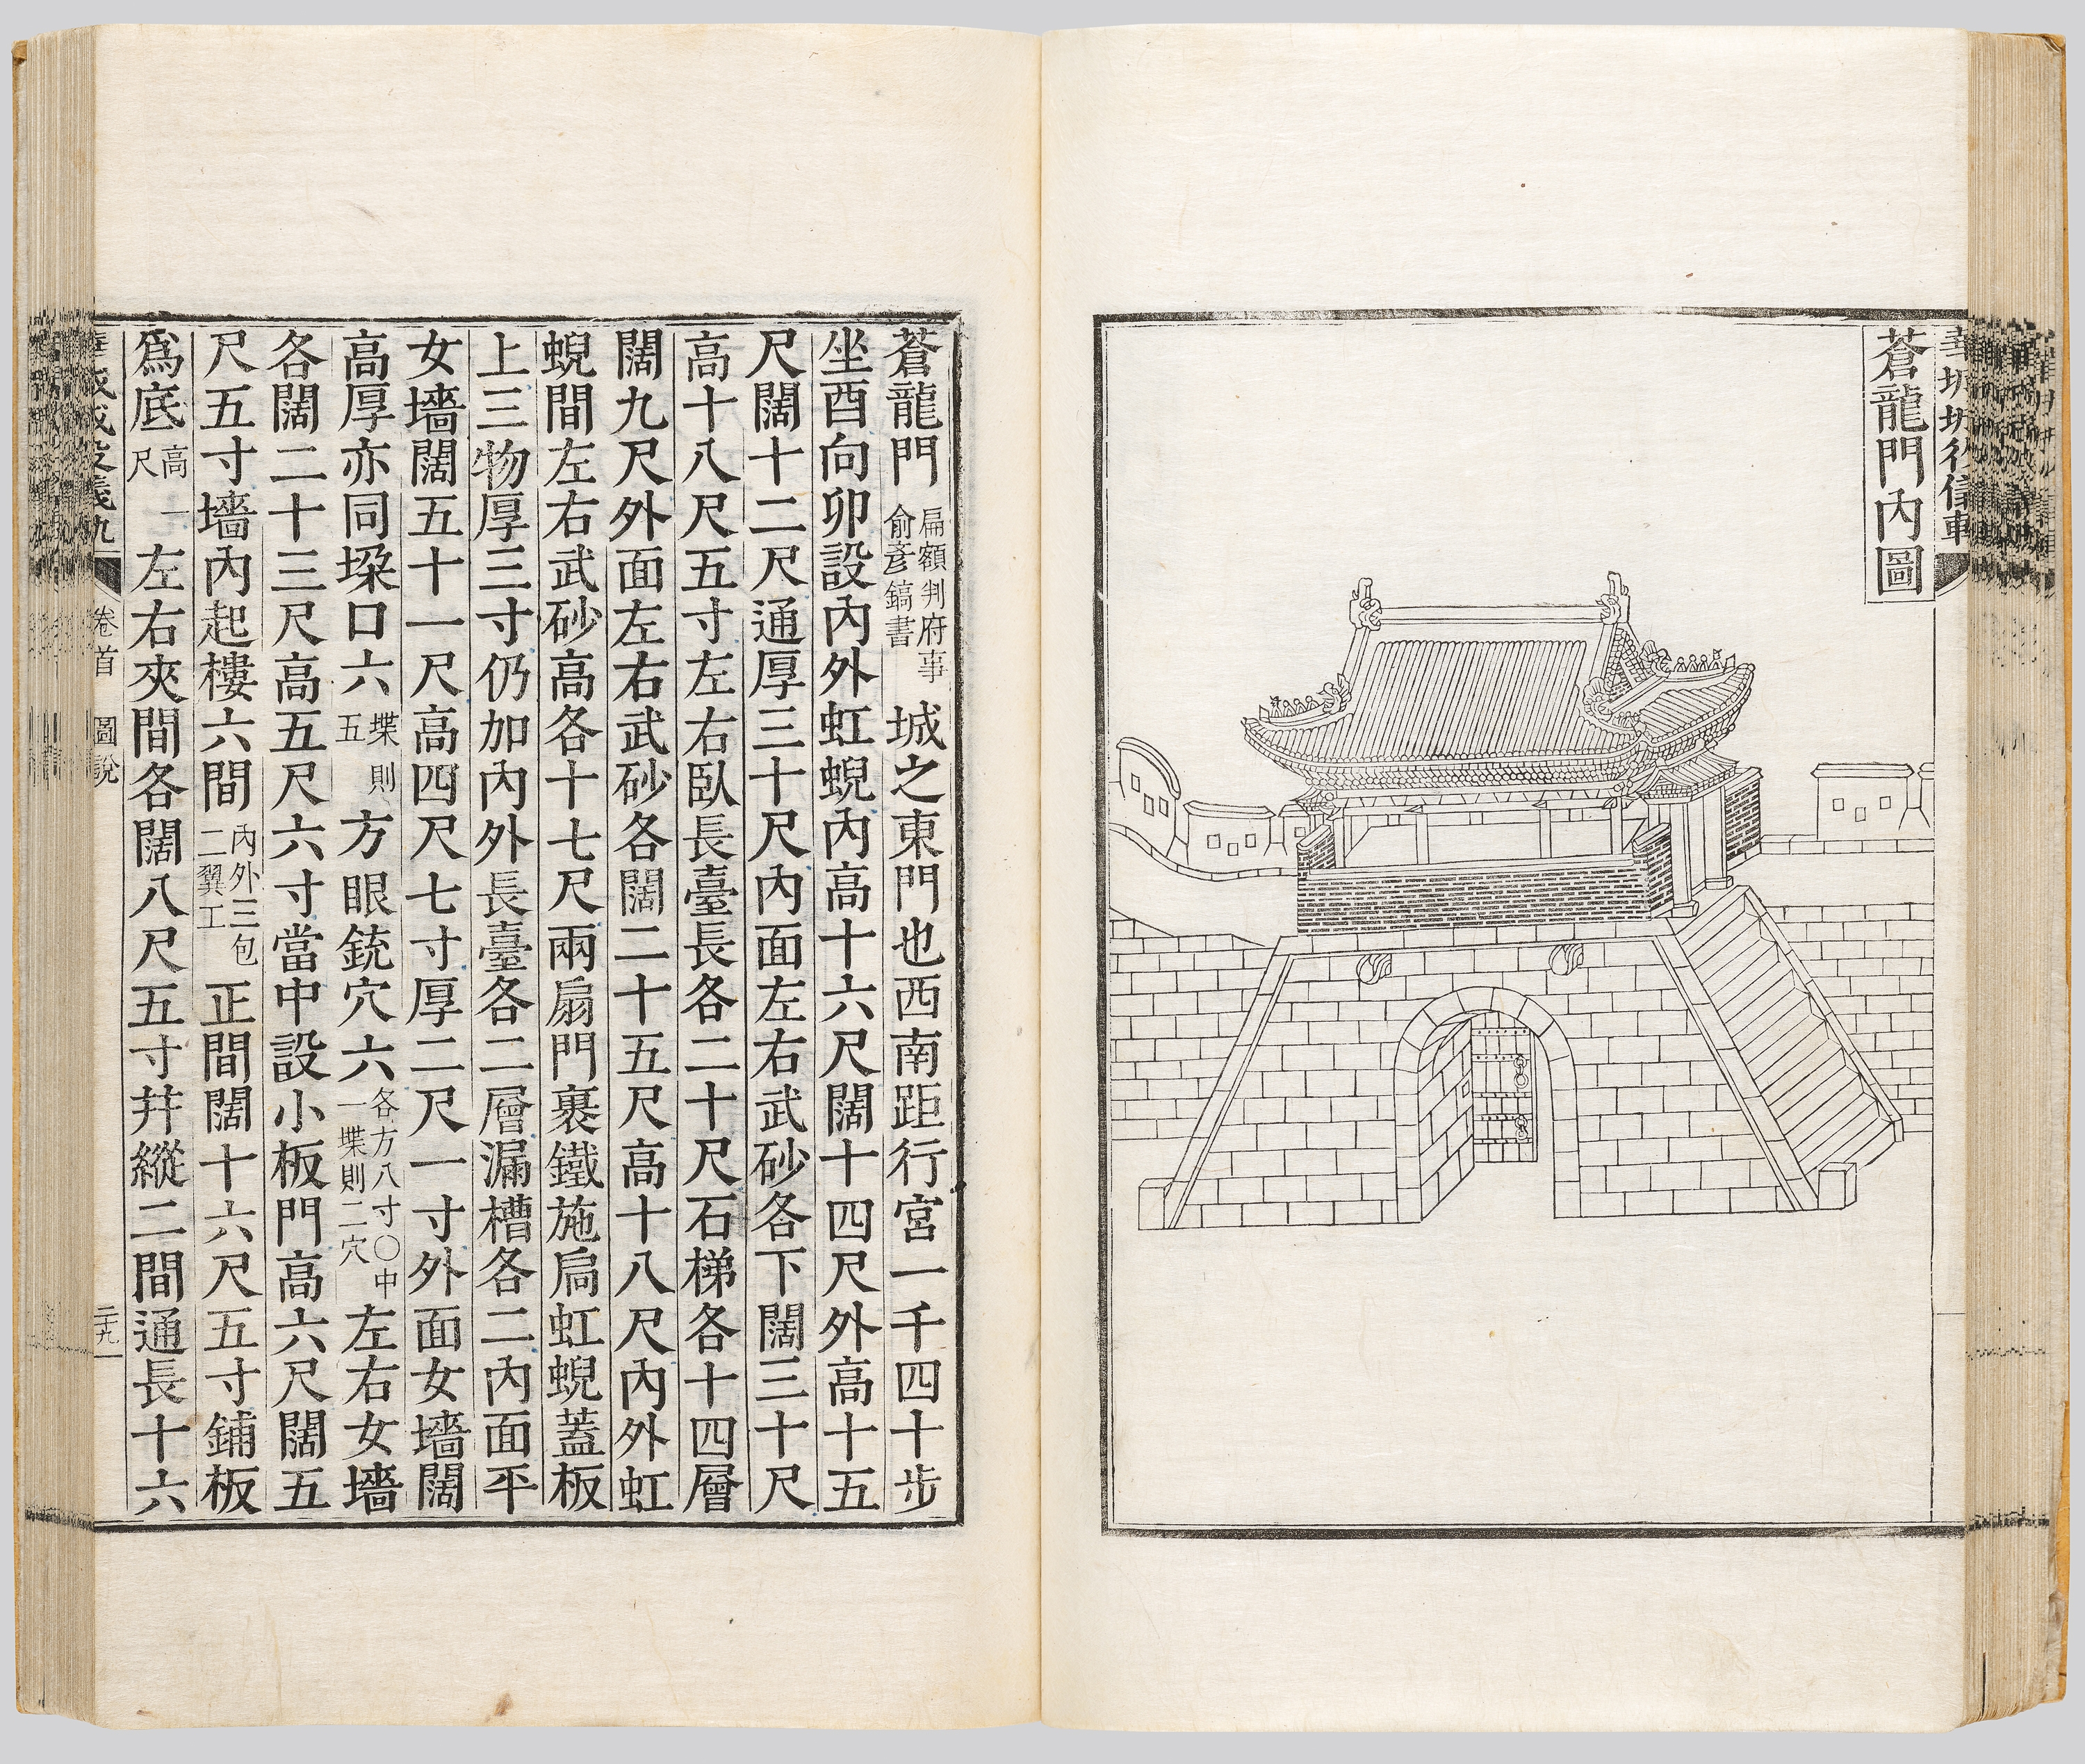 蒼龍門內圖
蒼龍門 扁額判府事 俞彥鎬書 城之東門也西南距行宮一千四十步
坐酉向卯設內外虹蜺內高十六尺闊十四尺外高十五
尺闊十二尺通厚三十尺內面左右武砂各下闊三十尺
高十八尺五寸左右臥長臺長各二十尺石梯各十四層
闊九尺外面左右武砂各闊二十五尺高十八尺內外虹
蜺間左右武砂高各十七尺兩扇門裹鐵施扃虹蜺蓋板
上三物厚三寸仍加內外長臺各二層漏槽各二內面平
女墻闊五十一尺高四尺七寸厚二尺一寸外面女墻闊
高厚亦同垜口六 堞則 五 方眼銃穴六 各方八寸〇中 一堞則二穴 左右女墻
各闊二十三尺高五尺六寸當中設小板門高六尺闊五
尺五寸墻內起樓六間 內外三包 二翼工 正間闊十六尺五寸鋪板
爲底 高一 尺 左右夾間各闊八尺五寸幷縱二間通長十六
卷首 圖說 二十九